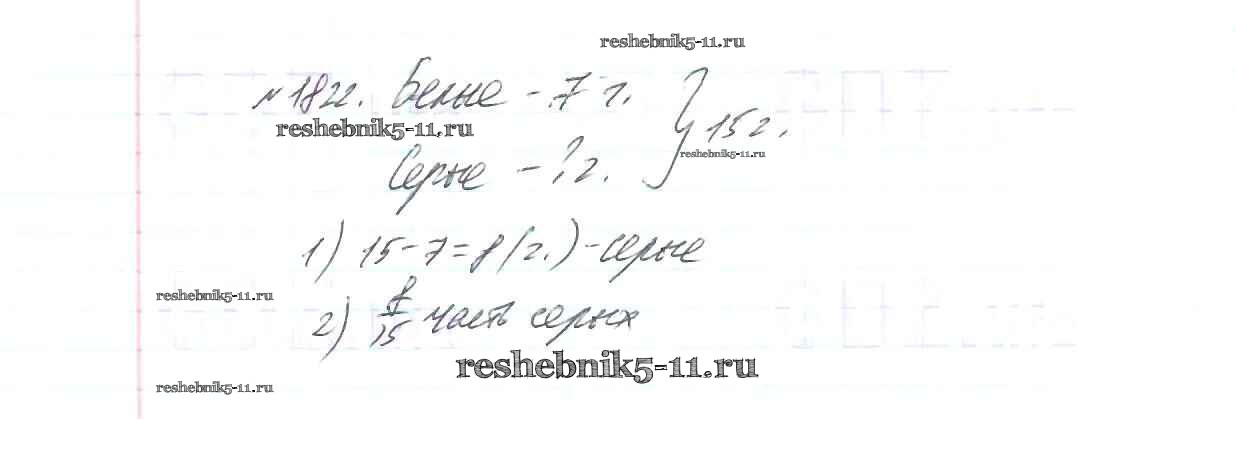 reshebnik5-11.ru
№1822. Белые - 7 г. } 15 г.
reshebnik5-11.ru
reshebnik5-11.ru
Серые - ? г.
1) 15 - 7 = 8 (г.) - серые
reshebnik5-11.ru
2) 8/15 часть серых
reshebnik5-11.ru
reshebnik5-11.ru